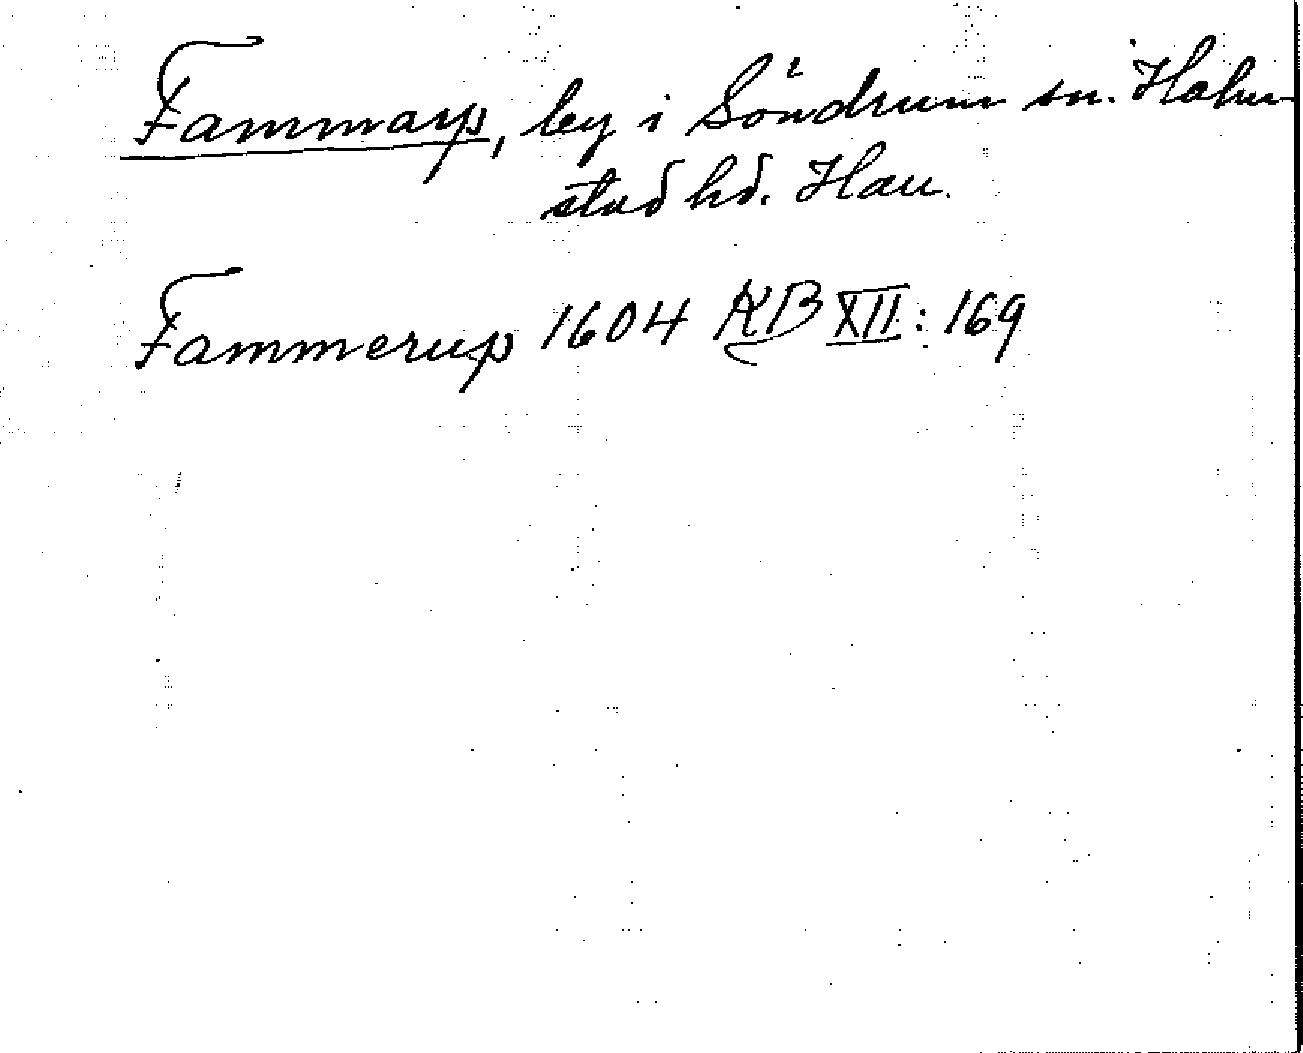 Fammarp, by i Söndrum sn. Halm-
stad hd. Hall.
Fammerup 1604 KB XII: 169